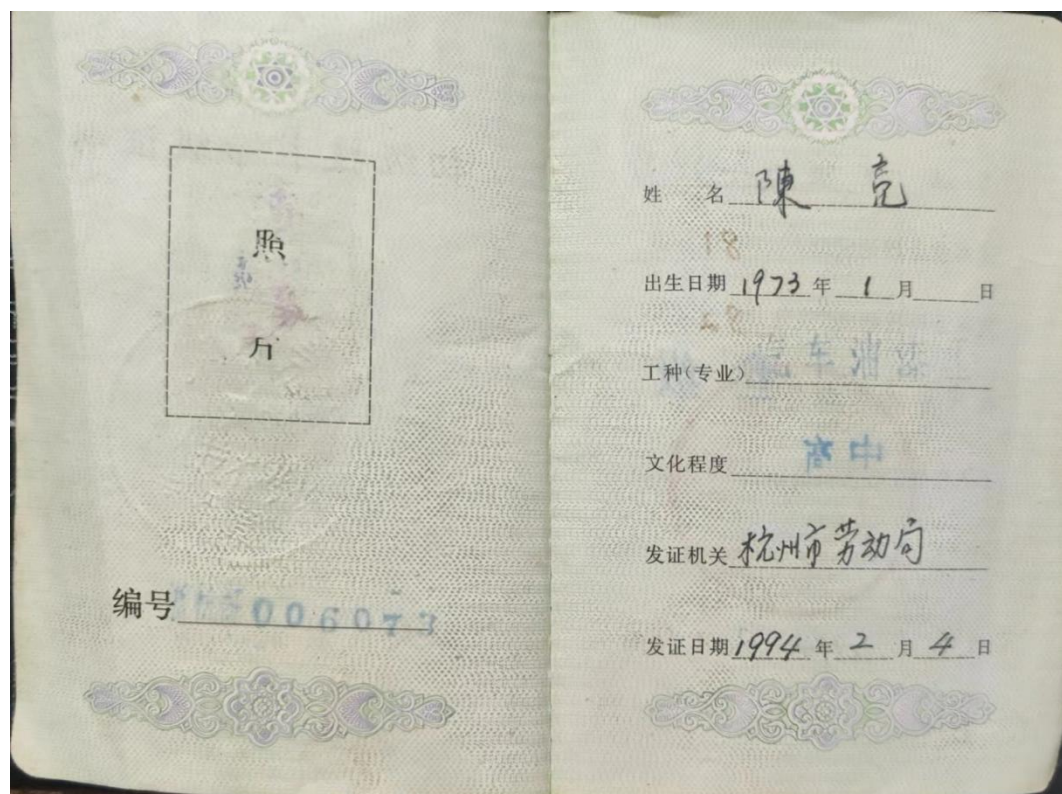 照
片
编号 006073
姓 名 陳 亮
出生日期 1973 年 1 月 日
工种(专业) 汽车油漆
文化程度
发证机关 杭州市劳动局
发证日期 1994 年 2 月 4 日